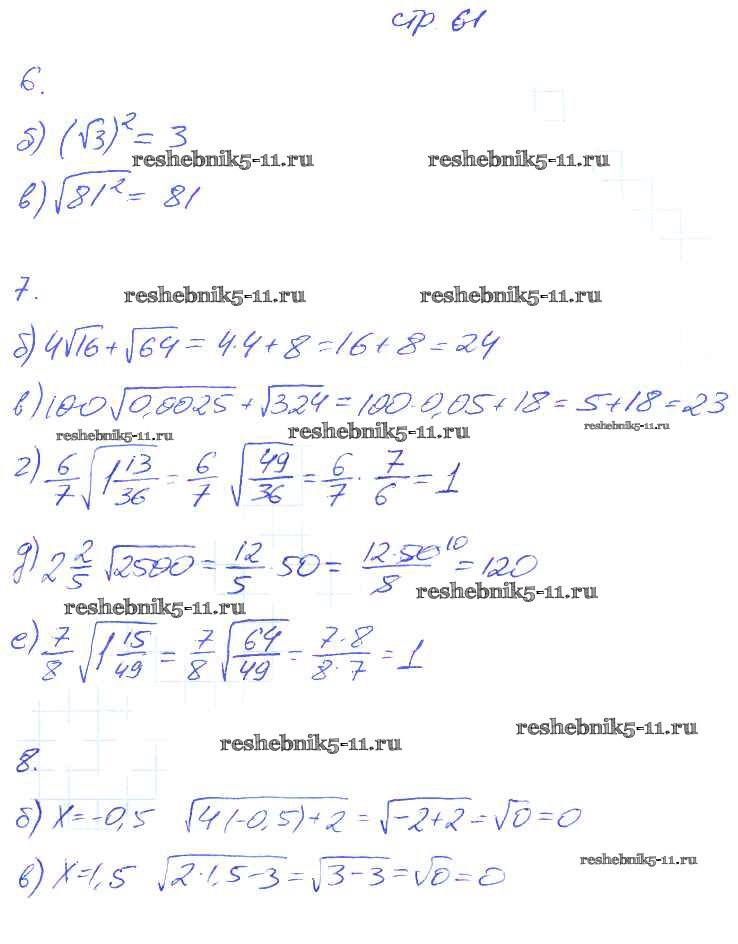 стр. 61
6.
б) (√3)² = 3
reshebnik5-11.ru reshebnik5-11.ru
в) √81² = 81
7.
reshebnik5-11.ru reshebnik5-11.ru
б) 4√16 + √64 = 4·4 + 8 = 16 + 8 = 24
в) 100√0,0025 + √324 = 100·0,05 + 18 = 5 + 18 = 23
reshebnik5-11.ru reshebnik5-11.ru reshebnik5-11.ru
г) 6/7 √(1 13/36) = 6/7 √(49/36) = 6/7 · 7/6 = 1
д) 2 2/5 √2500 = 12/5 · 50 = 12·50 10/5 = 120
reshebnik5-11.ru reshebnik5-11.ru
е) 7/8 √(1 15/49) = 7/8 √(64/49) = 7·8/8·7 = 1
reshebnik5-11.ru reshebnik5-11.ru
8.
б) x = -0,5 √(4(-0,5)+2) = √(-2+2) = √0 = 0
в) x = 1,5 √(2·1,5-3) = √(3-3) = √0 = 0
reshebnik5-11.ru